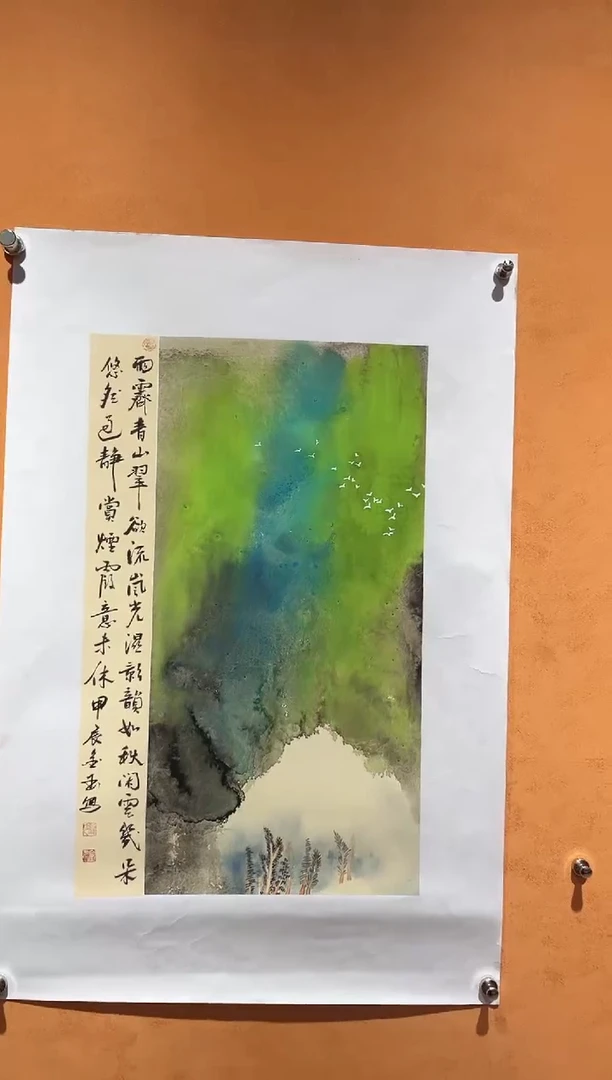 雨霽青山翠欲流嵐光湿影韻如秋闲雲幾朵
悠然過静賞煙霞意未休甲辰寫